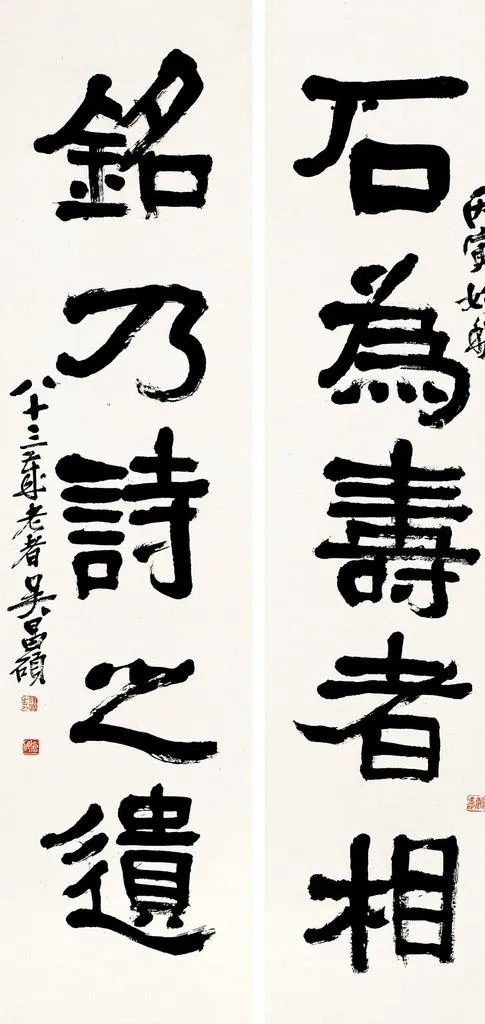 丙寅始秋
石為壽者相
銘乃詩之遺
八十三歲老者吳昌碩